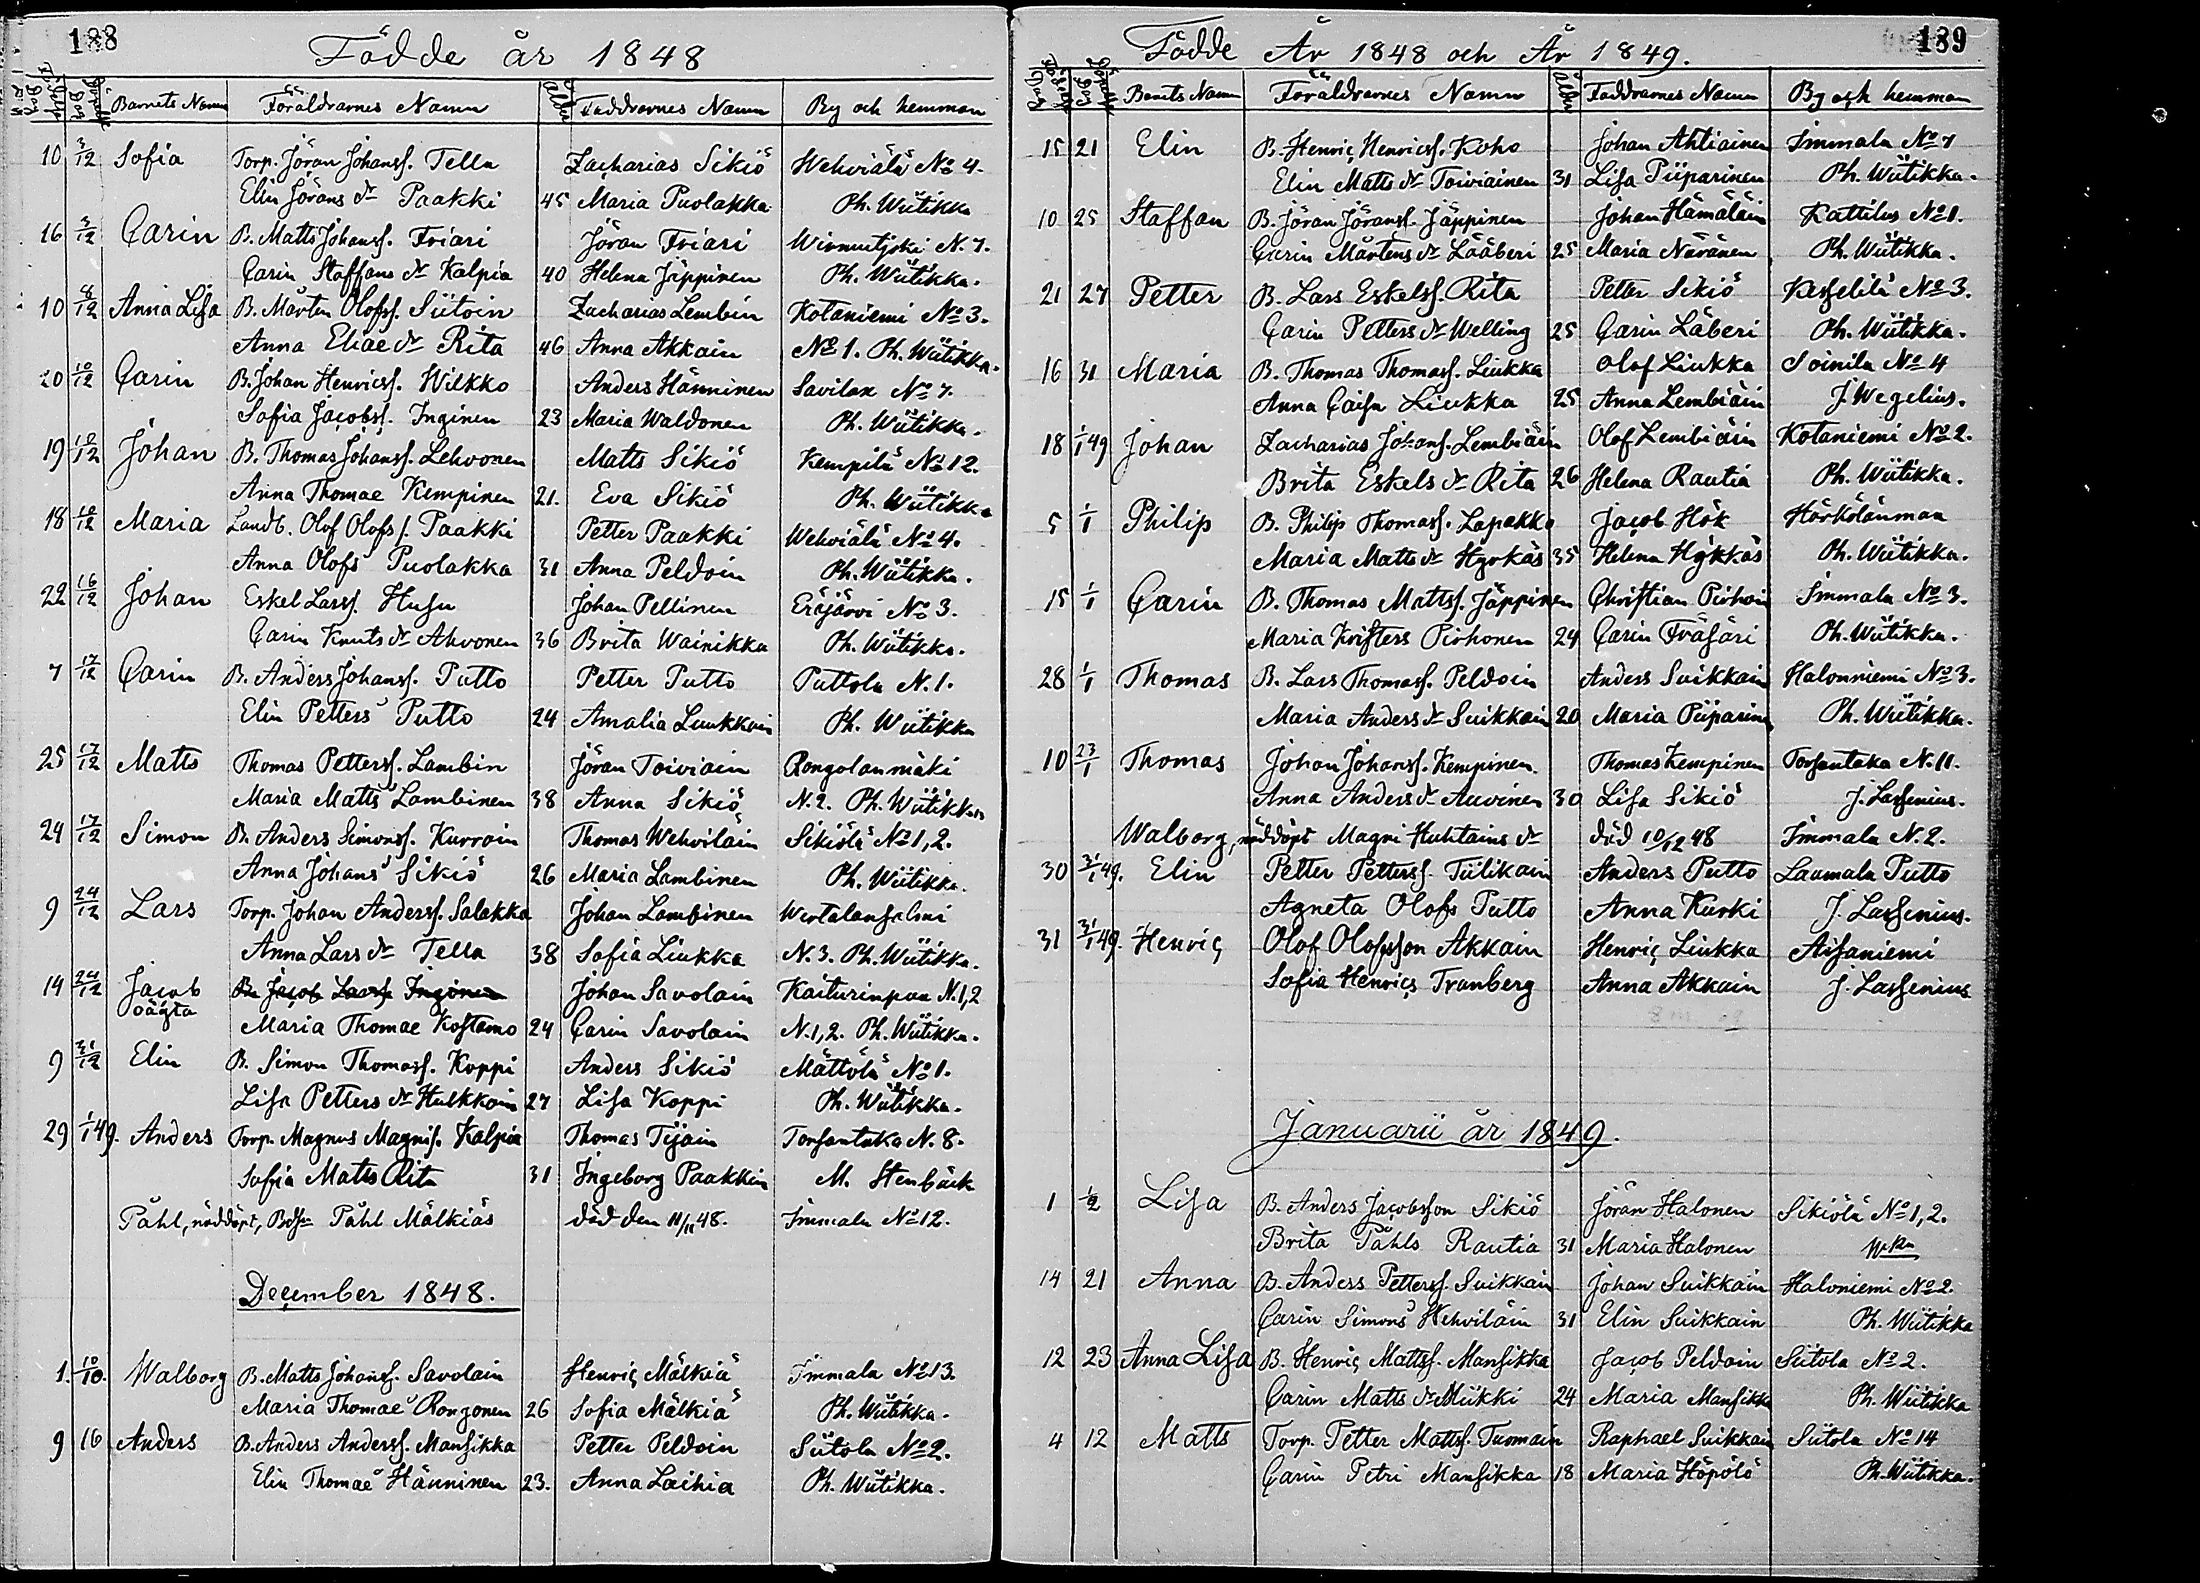 188
Födde år 1848
Födelse Dag Döpelse Dag Barnets Namn Föräldrarnes Namn Ålder Faddrarnes Namn By och hemman
10 3/12 Sofia Torp. Jöran Johanss. Tella Zacharias Sikiö Wehviälä No 4.
Elin Jörans dr Paakki 45 Maria Puolakka Ph. Wiitikka
16 3/12 Carin B. Matts Johanss. Friari Jöran Friari Wirmutjoki N. 7.
Carin Staffans dr Kalpia 40 Helena Jäppinen Ph. Wiitikka.
10 8/12 Anna Lisa B. Mårten Olofss. Siitoin Zacharias Lembin Kotaniemi No 3.
Anna Eliae dr Rita 46 Anna Akkain No 1. Ph. Wiitikka.
20 10/12 Carin B. Johan Henricss. Wilkko Anders Hänninen Savilax No 7.
Sofia Jacobss. Inginen 23 Maria Waldonen Ph. Wiitikka.
19 10/12 Johan B. Thomas Johanss. Lehvonen Matts Sikiö Kempilä No 12.
Anna Thomae Kempinen 21. Eva Sikiö Ph. Wiitikka
18 10/12 Maria Landb. Olof Olofss. Paakki Petter Paakki Wehviälä No 4.
Anna Olofs Puolakka 31 Anna Peldoin Ph. Wiitikka.
22 16/12 Johan Eskel Larss. Husu Johan Pellinen Eräjärvi No 3.
Carin Knuts dr Ahvonen 36 Brita Wainikka Ph. Wiitikka.
7 17/12 Carin B. Anders Johanss. Putto Petter Putto Puttola N. 1.
Elin Petters Putto 24 Amalia Luukkain Ph. Wiitikka
25 17/12 Matts Thomas Petterss. Lambin Jöran Toiviain Rongolanmäki
Maria Matts Lambinen 38 Anna Sikiö N. 2. Ph. Wiitikka
24 17/12 Simon B. Anders Simonss. Kurroin Thomas Wehviläin Sikiölä No 1,2.
Anna Johans Sikiö 26 Maria Lambinen Ph. Wiitikka.
9 24/12 Lars Torp. Johan Anderss. Salakka Johan Lambinen Wirtalansalmi
Anna Lars dr Tella 38 Sofia Liukka N. 3. Ph. Wiitikka.
14 24/12 Jacob B. Jacob Larss. Inginen Johan Savolain Kaiturinpaa N. 1,2
oägta Maria Thomae Kostamo 24 Carin Savolain N. 1,2. Ph. Wiitikka.
9 31/12 Elin B. Simon Thomass. Koppi Anders Sikiö Mättölä No 1.
Lisa Petters dr Hulkkoin 27 Lisa Koppi Ph. Wiitikka.
29 1/1 49. Anders Torp. Magnus Magnis. Kalpia Thomas Tijain Torsantaka N. 8.
Sofia Matts Rita 31 Ingeborg Paakkin M. Stenbäck
Påhl, nöddöpt, Bdsn Påhl Mälkiäs död den 11/11 48. Immala No 12.
December 1848.
1. 10/10. Walborg B. Matts Johanss. Savolain Henric Mälkiä Immala No 13.
Maria Thomae Rongonen 26 Sofia Mälkiä Ph. Wiitikka.
9 16 Anders B. Anders Anderss. Mansikka Petter Peldoin Siitola No 2.
Elin Thomae Hänninen 23. Anna Laihia Ph. Wiitikka.
189
Födde År 1848 och År 1849.
Födelse Dag Döpelse Dag Barnets Namn Föräldrarnes Namn Ålder Faddrarnes Namn By och hemman
15 21 Elin B. Henric Henricss. Koho Johan Ahtiainen Immala No 7
Elin Matts dr Toiviainen 31 Lisa Piiparinen Ph. Wiitikka.
10 25 Staffan B. Jöran Jöranss. Jäppinen Johan Hämäläin Kattilus No 1.
Carin Mårtens dr Lääberi 25 Maria Näränen Ph. Wiitikka.
21 27 Petter B. Lars Eskelss. Rita Petter Sikiö Kesselilä No 3.
Carin Petters dr Welling 25 Carin Läberi Ph. Wiitikka.
16 31 Maria B. Thomas Thomass. Liukka Olof Liukka Soinila No 4
Anna Caisa Liukka 25 Anna Lembiäin J. Wegelius.
18 1/1 49 Johan Zacharias Johanss. Lembiäin Olof Lembiäin Kotaniemi No 2.
Brita Eskels dr Rita 26 Helena Rautia Ph. Wiitikka.
5 1/1 Philip B. Philip Thomass. Lapakko Jacob Hök Härkölänmaa
Maria Matts dr Hyrkäs 35 Helena Hykkäs Ph. Wiitikka.
15 1/1 Carin B. Thomas Mattss. Jäppinen Christian Pirhoin Immala No 3.
Maria Kristers Pirhonen 24 Carin Fräsäri Ph. Wiitikka.
28 1/1 Thomas B. Lars Thomass. Peldoin Anders Suikkain Halonniemi No 3.
Maria Anders dr Suikkain 20 Maria Piiparinen Ph. Wiitikka.
10 23/1 Thomas Johan Johanss. Kempinen. Thomas Kempinen Torsantaka N. 11.
Anna Anders dr Auvinen 30 Lisa Sikiö J. Lassenius.
Walborg, nöddöpt Magni Huhtains dr död 10/12 48 Immala N. 2.
30 31/1 49. Elin Petter Petterss. Tiilikain Anders Putto Laumala Putto
Agneta Olofs Putto Anna Kurki J. Lassenius.
31 31/1 49. Henric Olof Olofsson Akkain Henric Liukka Aisaniemi
Sofia Henrics Tranberg Anna Akkain J. Lassenius
Januarii år 1849.
1 1/2 Lisa B. Anders Jacobsson Sikiö Jöran Halonen Sikiölä No 1,2.
Brita Påhls Rautia 31 Maria Halonen Wka
14 21 Anna B. Anders Petterss. Suikkain Johan Suikkain Haloniemi No 2.
Carin Simons Wehviläin 31 Elin Suikkain Ph. Wiitikka
12 23 Anna Lisa B. Henric Mattss. Mansikka Jacob Peldoin Siitola No 2.
Carin Matts dr Miikki 24 Maria Mansikka Ph. Wiitikka
4 12 Matts Torp. Petter Mattss. Tuomain Raphael Suikkain Siitola No 14
Carin Petri Mansikka 18 Maria Höpölö Ph. Wiitikka.